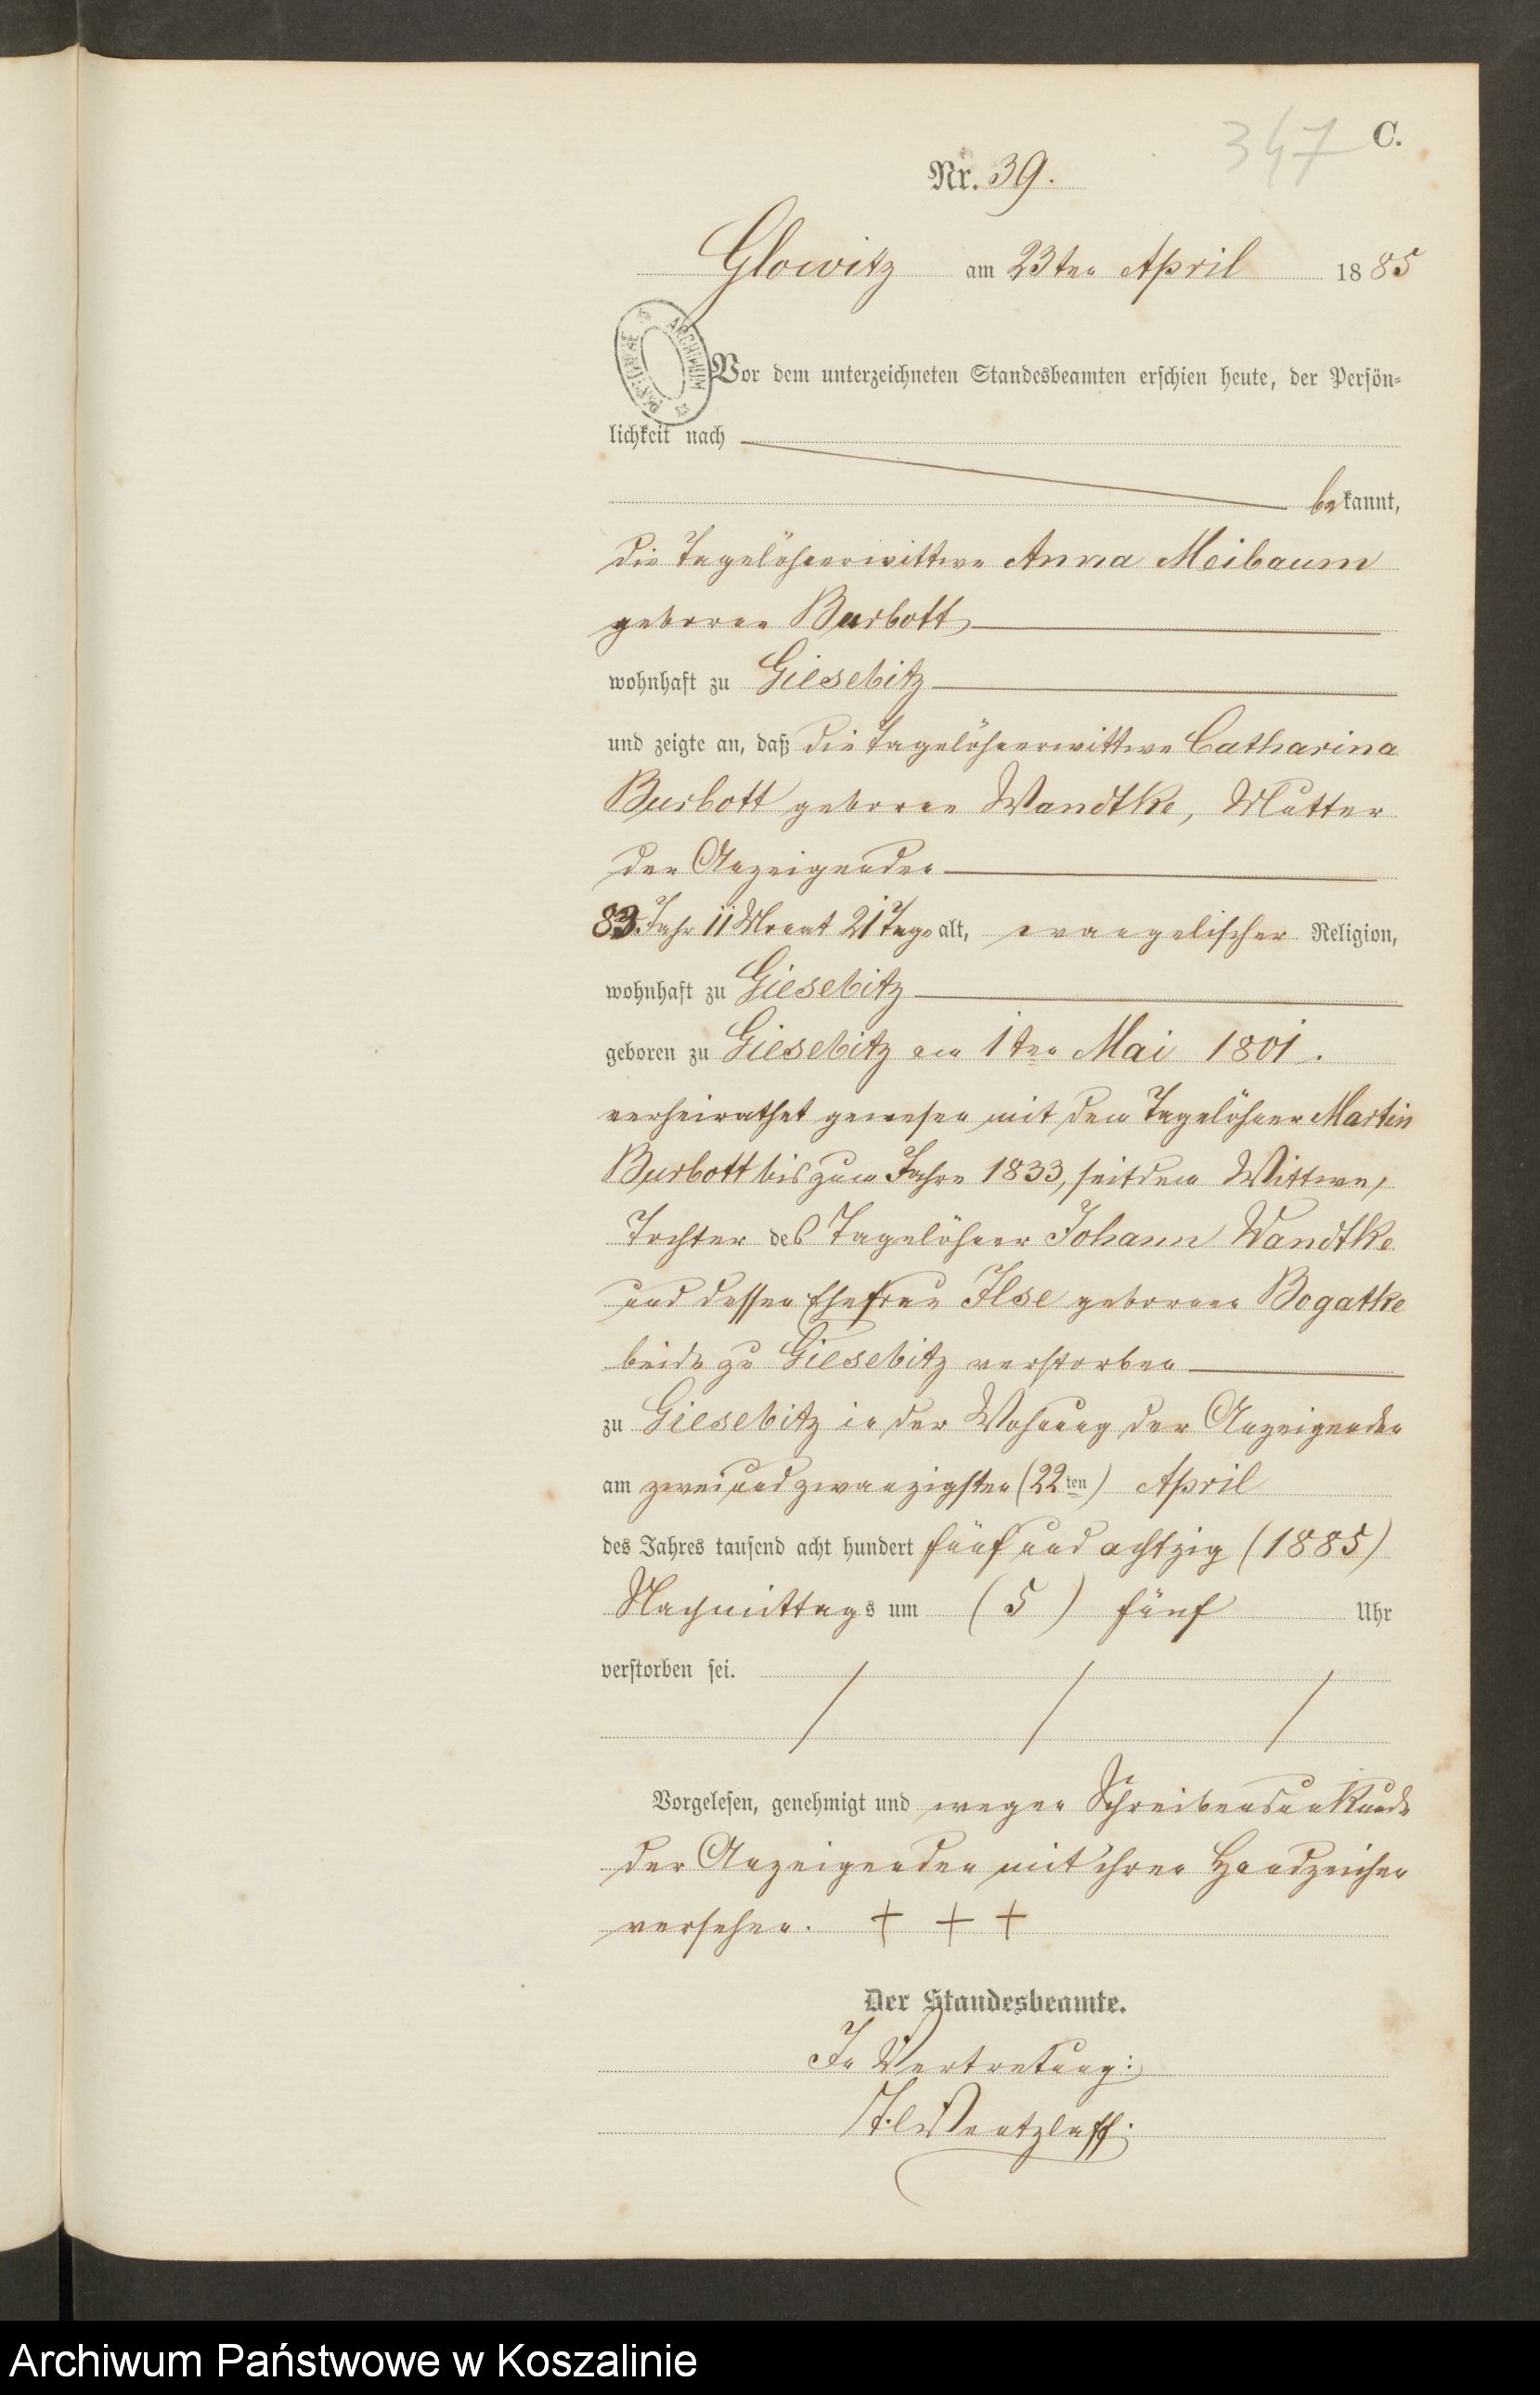 347 C.
Nr. 39.
Glowitz am 23ten April 1885
ARCHIWUM PAŃSTWOWE
Vor dem unterzeichneten Standesbeamten erschien heute, der Persön-
lichkeit nach
bekannt,
die Tagelöhnerwittwe Anna Meibaum
geborne Burbott
wohnhaft zu Giesebitz
und zeigte an, daß die Tagelöhnerwittwe Catharina
Burbott geborne Wandtke, Mutter
der Anzeigenden
83 Jahr 11 Monat 21 Tage alt, evangelischer Religion,
wohnhaft zu Giesebitz
geboren zu Giesebitz am 1ten Mai 1801.
verheirathet gewesen mit dem Tagelöhner Martin
Burbott bis zum Jahre 1833, seitdem Wittwe,
Tochter des Tagelöhner Johann Wandtke
und dessen Ehefrau Ilse gebornen Bogatke
beide zu Giesebitz verstorben
zu Giesebitz in der Wohnung der Anzeigenden
am zweiundzwanzigsten (22ten) April
des Jahres tausend acht hundert fünf und achtzig (1885)
Nachmittags um (5) fünf Uhr
verstorben sei.
Vorgelesen, genehmigt und wegen Schreibensunkunde
der Anzeigenden mit ihren Handzeichen
versehen. + + +
Der Standesbeamte.
In Vertretung:
Wentzlaff.
Archiwum Państwowe w Koszalinie